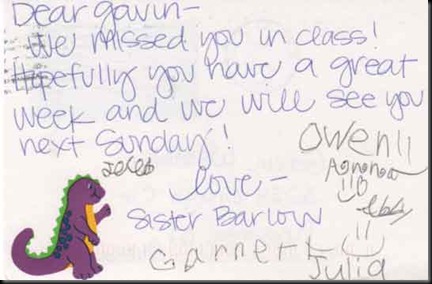 Dear gavin-
We missed you in class!
Hopefully you have a great
week and we will see you
next Sunday!
Owen!!
love-
Sister Barlow
Garnett
Julia